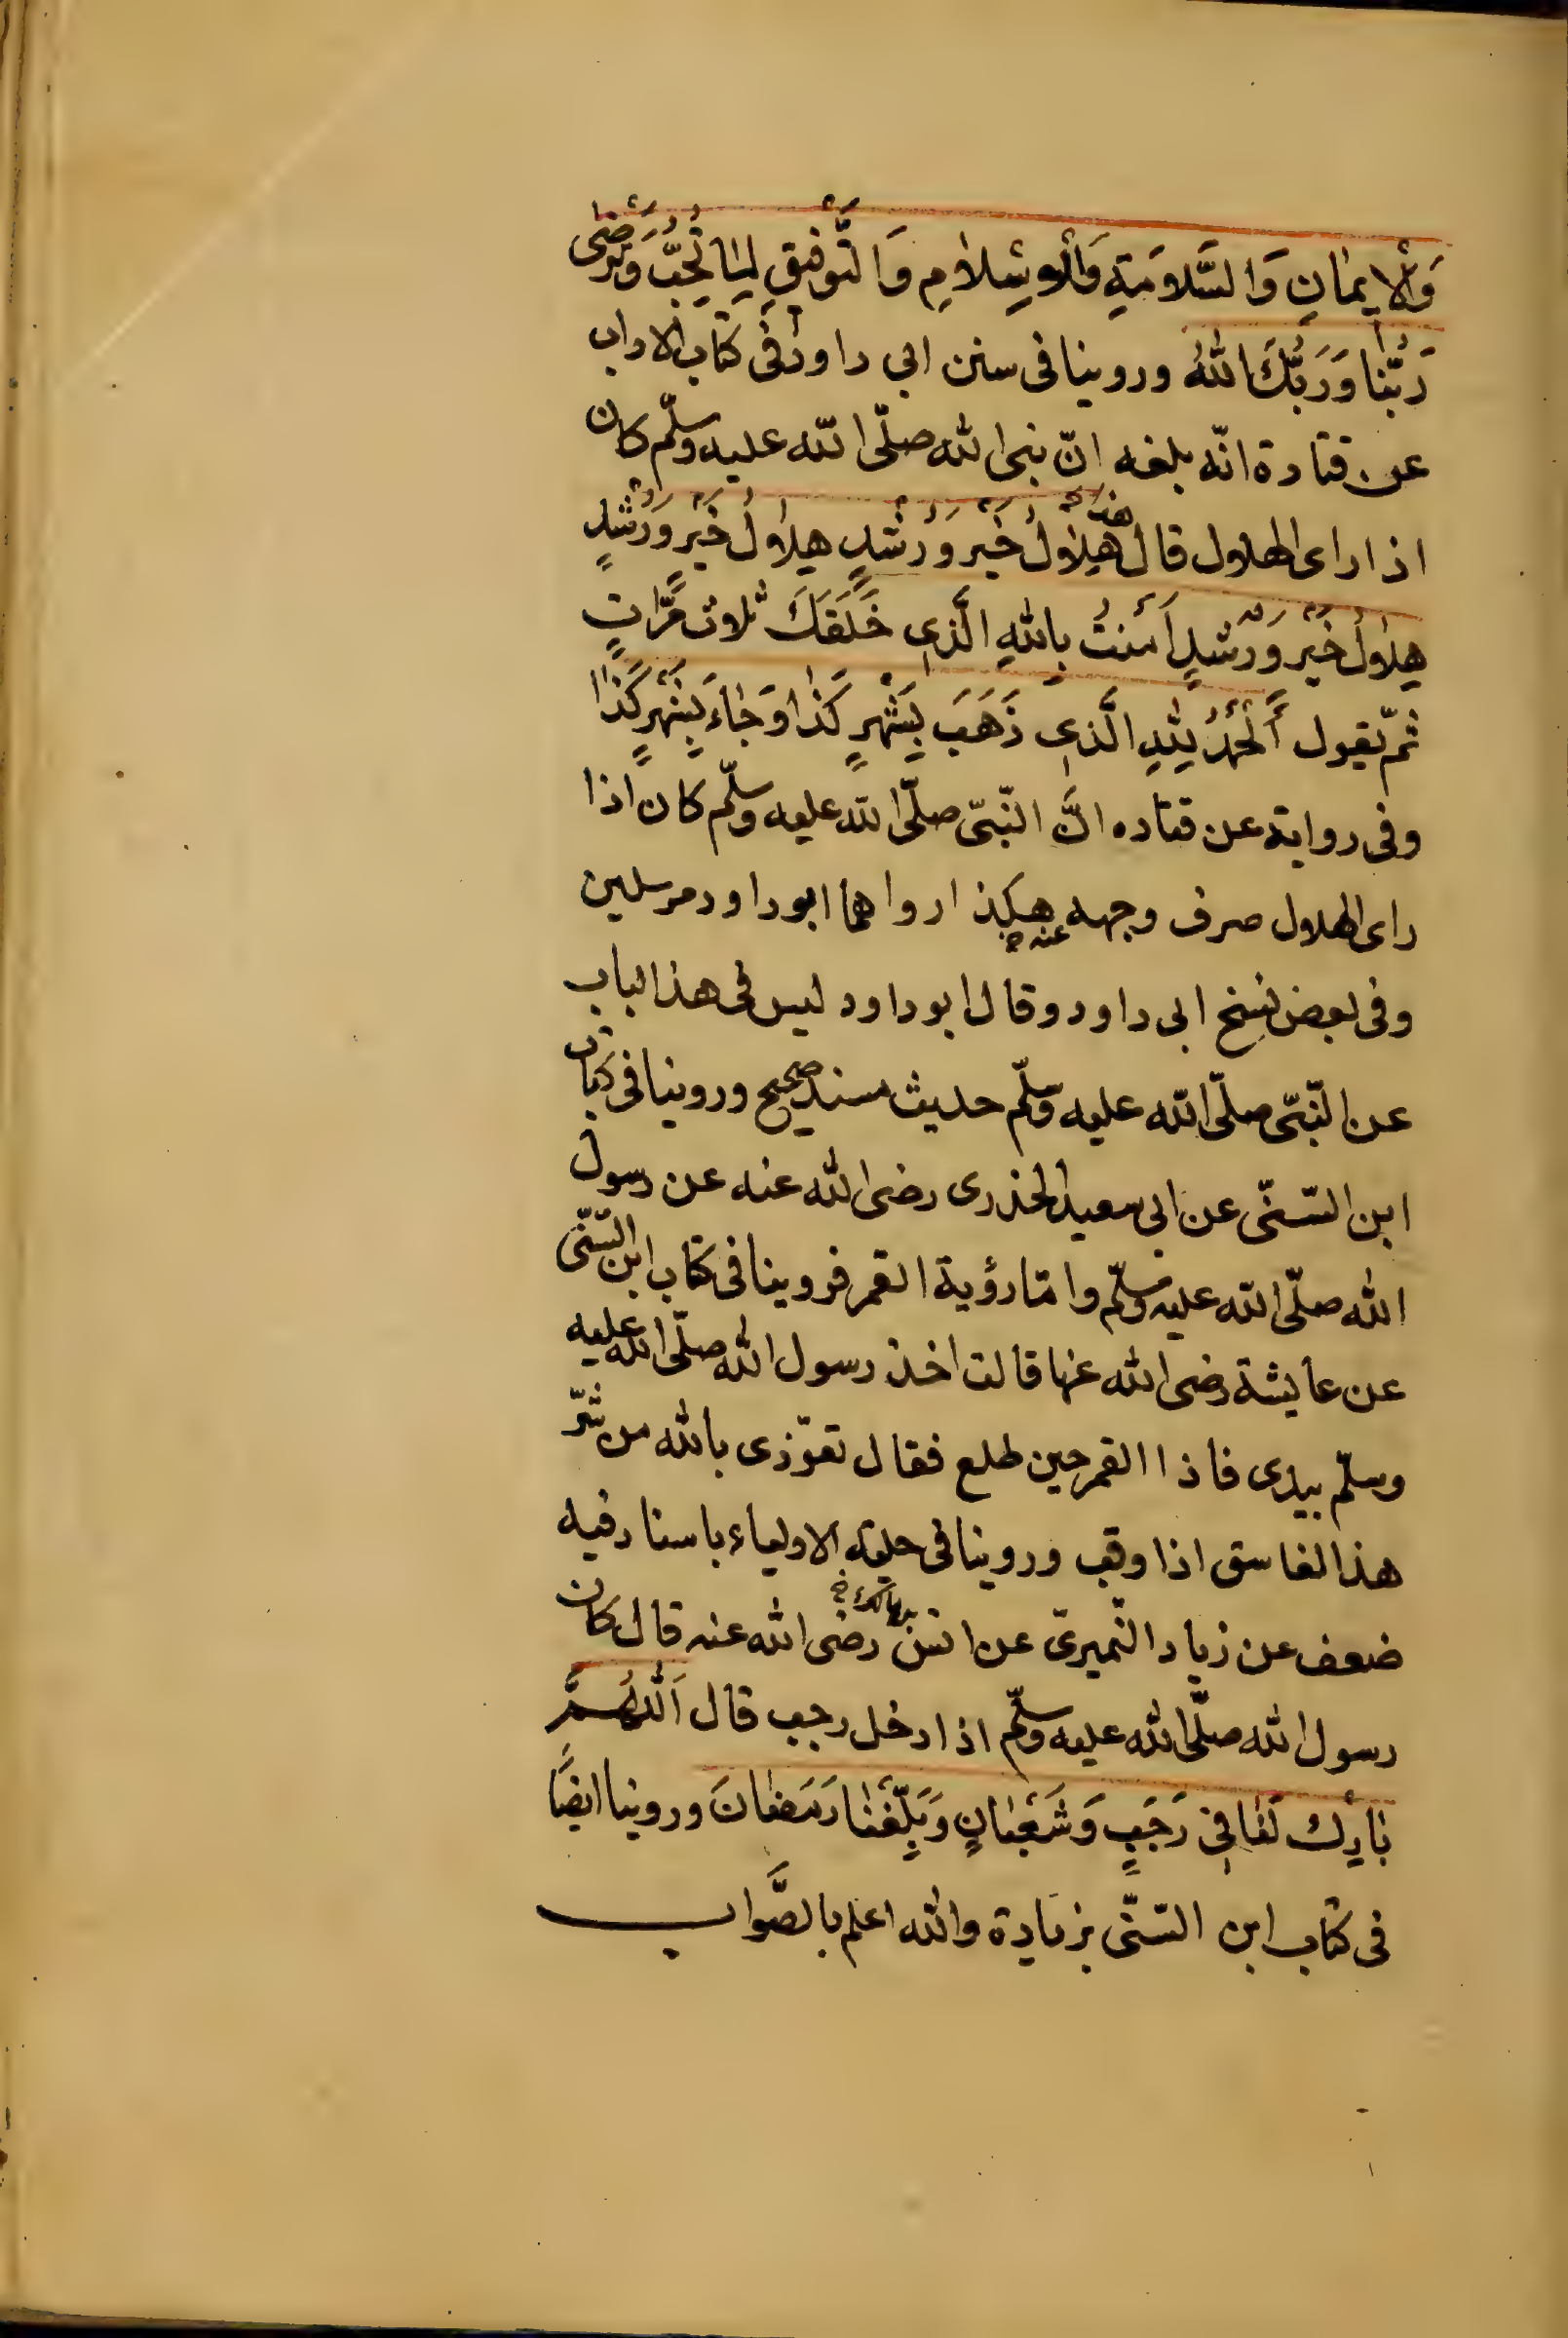 وَالْإيمانِ وَالسَّلامَةِ وَالْاِسْلامِ وَالتَّوْفيقِ لِمٰا تُحِبُّ وَتَرْضٰى
رَبُّنا وَرَبُّكَ اللهُ وروينا فى سنن ابى داود فى كتاب الاداب
عن قتادة انّه بلغه انّ نبى الله صلّى الله عليه وسلّم كان
اذا راى الهلال قال هِلٰالُ خَيْرٍ وَرُشْدٍ هِلٰالُ خَيْرٍ وَرُشْدٍ
هِلٰالُ خَيْرٍ وَرُشْدٍ اٰمَنْتُ بِاللهِ الَّذى خَلَقَكَ ثلاث مَرّٰاتٍ
ثمّ يقول اَلْحَمْدُ لِلّٰهِ الَّذى ذَهَبَ بِشَهْرٍ كَذٰا وَجٰاءَ بِشَهْرٍ كَذٰا
وفى رواية عن قتاده انَّ النّبىّ صلّى الله عليه وسلّم كان اذا
راى الهلال صرف وجهه عنه هكذا رواهما ابو داود مرسلين
وفى بعض نسخ ابى داود وقال ابو داود ليس فى هذا الباب
عن النّبىّ صلّى الله عليه وسلّم حديث مسند صحيح وروينا فى كتاب
ابن السّنّى عن ابى سعيد الخذرى رضى الله عنه عن رسول
الله صلّى الله عليه وسلّم وامّا رؤية القمر فروينا فى كتاب ابن السّنّى
عن عايشة رضى الله عنها قالت اخذ رسول الله صلّى الله عليه
وسلّم بيدى فاذا القمر حين طلع فقال تعوّذى بالله من شرّ
هذا الغاسق اذا وقب وروينا فى حلية الاولياء باسناد فيه
ضعف عن زياد النّميرىّ عن انس بن مالك رضى الله عنه قال كان
رسول الله صلّى الله عليه وسلّم اذا دخل رجب قال اَللّٰهُمَّ
بٰارِكْ لَنٰا فى رَجَبٍ وَشَعْبٰانٍ وَبَلِّغْنٰا رَمَضٰانَ وروينا ايضًا
فى كتاب ابن السّنّى بزيادة والله اعلم بالصَّواب